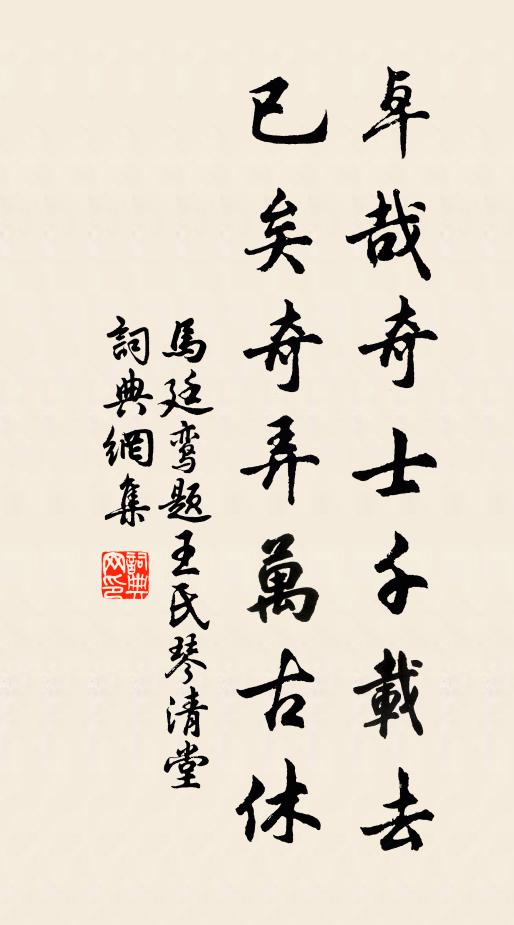 卓哉奇士千載去
已矣奇弄萬古休
馬廷鸞题王氏琴清堂
詞典網集
詞典网印